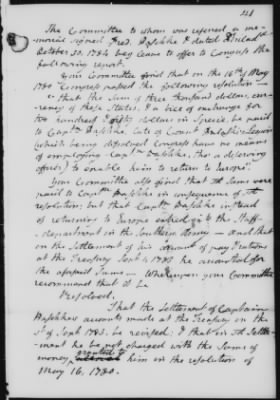 41
The Committee to whom was referred a me-
morial signed Fred. Paschke & dated Philada
October 30. 1784 beg leave to offer to Congress the
following report.
Your Committee find that on the 16th of May
1780 Congress passed the following resolution
"that the sum of three thousand dollars, cur-
rency of these States, & a bill of exchange for
two hundred & fifty dollars in Specie, be paid
to Captn Paschke, late of Count Pulaski's Legion
(which being dissolved Congress have no means
of employing Captn Paschke, tho a deserving
officer) to enable him to return to Europe".
Your Committee also find that the sums were
paid to Captn Paschke in consequence of the
resolution; but that Captn Paschke instead
of returning to Europe
department in the Southern Army — and that
on the Settlement of his account of pay & rations
at the Treasury Sept 1. 1783 he accounted for
the aforesaid sums — Whereupon your Committee
recommend that it be
Resolved,
That the Settlement of Captain
Paschkes accounts made at the Treasury on the
1st of Sept 1783. be revised; & that in the Settle-
ment he be not charged with the sums of
money granted to him in the resolution of
May 16, 1780.